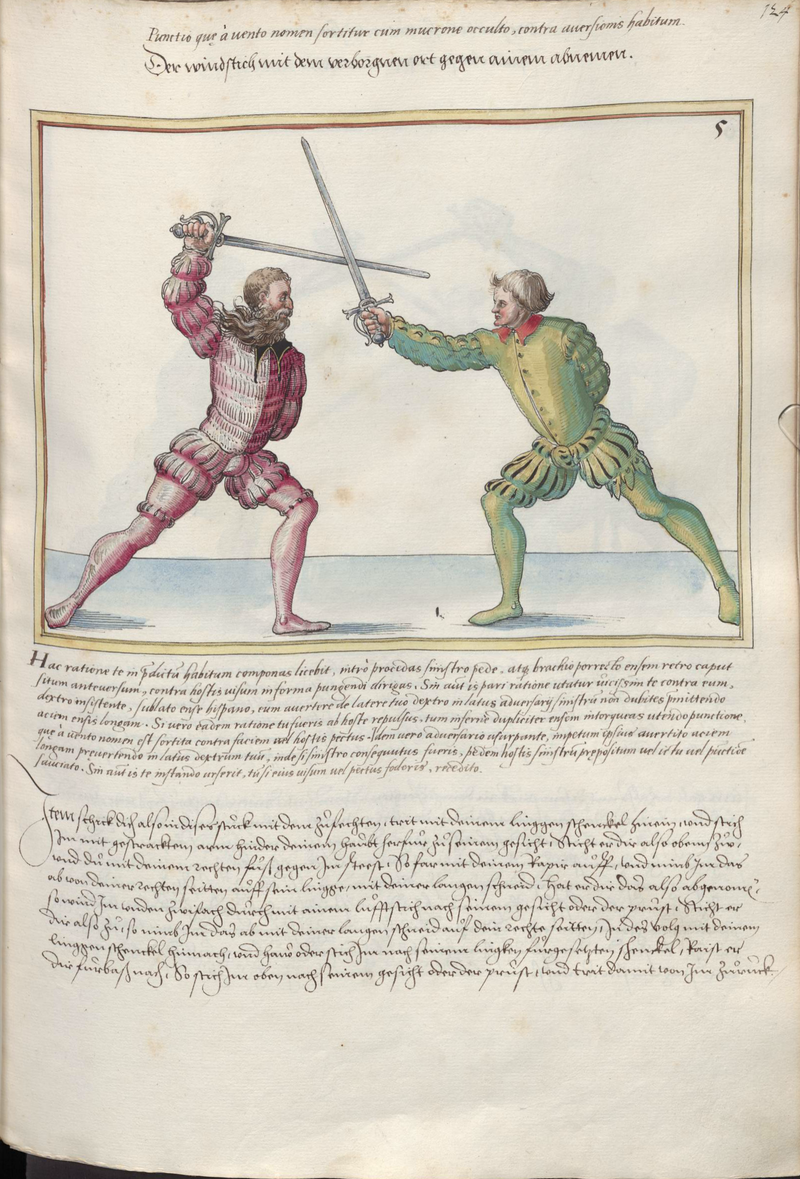 124
Punctio que à uento nomen sortitur cum mucrone occulto, contra auersionis habitum.
Der windstich mit dem verborgnen ort gegen ainem abnemen.
5
Hac ratione te in p̄dictū habitum componas licebit, intrò procedas sinistro pede, atq; brachio porrecto ensem retro caput
situm anteuersum, contra hostis uisum in forma pungendi dirigas. Sin aut is pari ratione utatur uicissim te contra eum,
dextro insistente, sublato ense hispano, eum auertere de latere tuo dextro in latus aduersarij sinistrū non dubites p̄mittendo
aciem ensis longam. Si uero eadem ratione tu fueris ab hoste repulsus, tum infernè dupliciter ensem intorqueas utendo punctione,
que à uento nomen est sortita contra faciem uel hostis pectus. Idem uerò aduersario usurpante, impetum ipsius auertito aciem
longam preuertendo in latus dextrum tuū, inde si sinistro consequutus fueris, pedem hostis sinistrū prepositum uel ictu uel punctiōe
sauciato. Sin aut is te instando urserit, tu si eius uisum uel pectus fodoris, recedito.
Item schick dich also in diser stuck mit dem zufechten, trit mit deinem linggen schenckel hinein, vnd stich
Im mit gestracktem arm hinder deinem haubt herfur zu seinem gesicht, Sticht er dir also oben zů,
vnd du mit deinem rechten fuß gegen Im steest, So far mit deinem Rapir auff, vnd nimb Im das
ab von deiner rechten seitten auff sein lingge, mit deiner langen schneid, Hat er dir das also abgenomē,
so wind Im vnden zwifach durch mit ainem lufftstich nach seinem gesicht oder der prust, Sticht er
dir also zů, so nimb Im das ab mit deiner langen schneid auf dein rechte seitten, In des volg mit deinem
linggen schenckel hinnach, vnd haw oder stich Im nach seinem lingken furgesetzten schenckel, Raist er
dir furbaß nach, So stich Im oben nach seinem gesicht oder der prust, vnd trit damit von Im zuruck